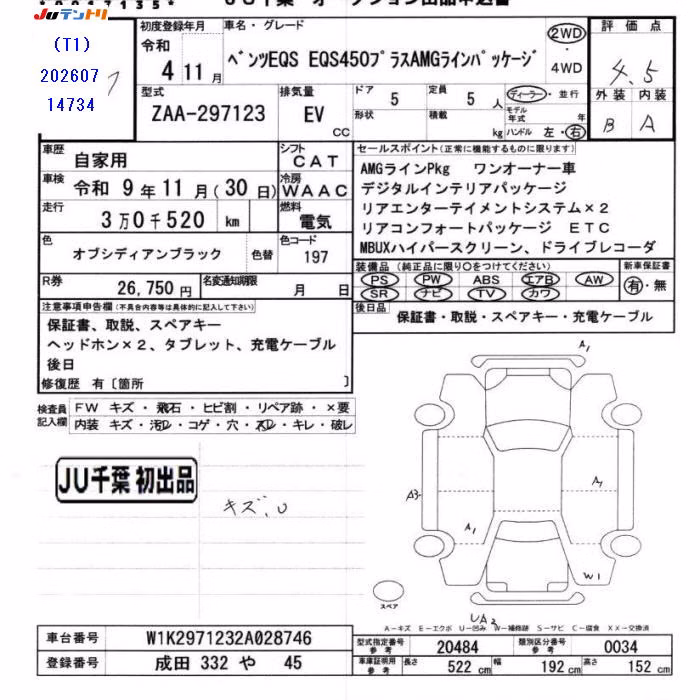 JUテントリ
(T1)
202607
14734
初度登録年月 車名・グレード
令和 4 11月 ベンツEQS EQS450プラスAMGラインパッケージ 2WD・4WD
評価点
4.5
外装 内装
B A
型式 ZAA-297123 排気量 EV CC
ドア 5 定員 5 人 ディーラー・並行
形状 積載 kg モデル年式 年 ハンドル 左・右
車歴 自家用 シフト CAT
車検 令和 9年11月(30日) 冷房 WAAC
走行 3万0千520 km 燃料 電気
色 オブシディアンブラック 色替 色コード 197
R券 26,750円 名変通知期限 月 日
セールスポイント(正常に機能するものに限ります)
AMGラインPkg ワンオーナー車
デジタルインテリアパッケージ
リアエンターテイメントシステム×2
リアコンフォートパッケージ ETC
MBUXハイパースクリーン、ドライブレコーダ
装備品(純正品に限り○をつけてください) 新車保証書
PS PW ABS エアB AW 有・無
SR ナビ TV カワ
後日品 保証書・取説・スペアキー・充電ケーブル
注意事項申告欄(不具合内容等は具体的に記入して下さい)
保証書、取説、スペアキー
ヘッドホン×2、タブレット、充電ケーブル
後日
修復歴 有〔箇所 〕
検査員記入欄 FW キズ・飛石・ヒビ割・リペア跡・×要
内装 キズ・汚レ・コゲ・穴・スレ・キレ・破レ
JU千葉 初出品
キズ、U
A1
A3
A1
A1
W1
UA2
スペア
A-キズ E-エクボ U-凹み W-補修跡 S-サビ C-腐食 XX-交換済
車台番号 W1K2971232A028746
登録番号 成田 332 や 45
型式指定番号 参考 20484 類別区分番号 参考 0034
車庫証明用 参考 長さ 522 cm 幅 192 cm 高さ 152 cm